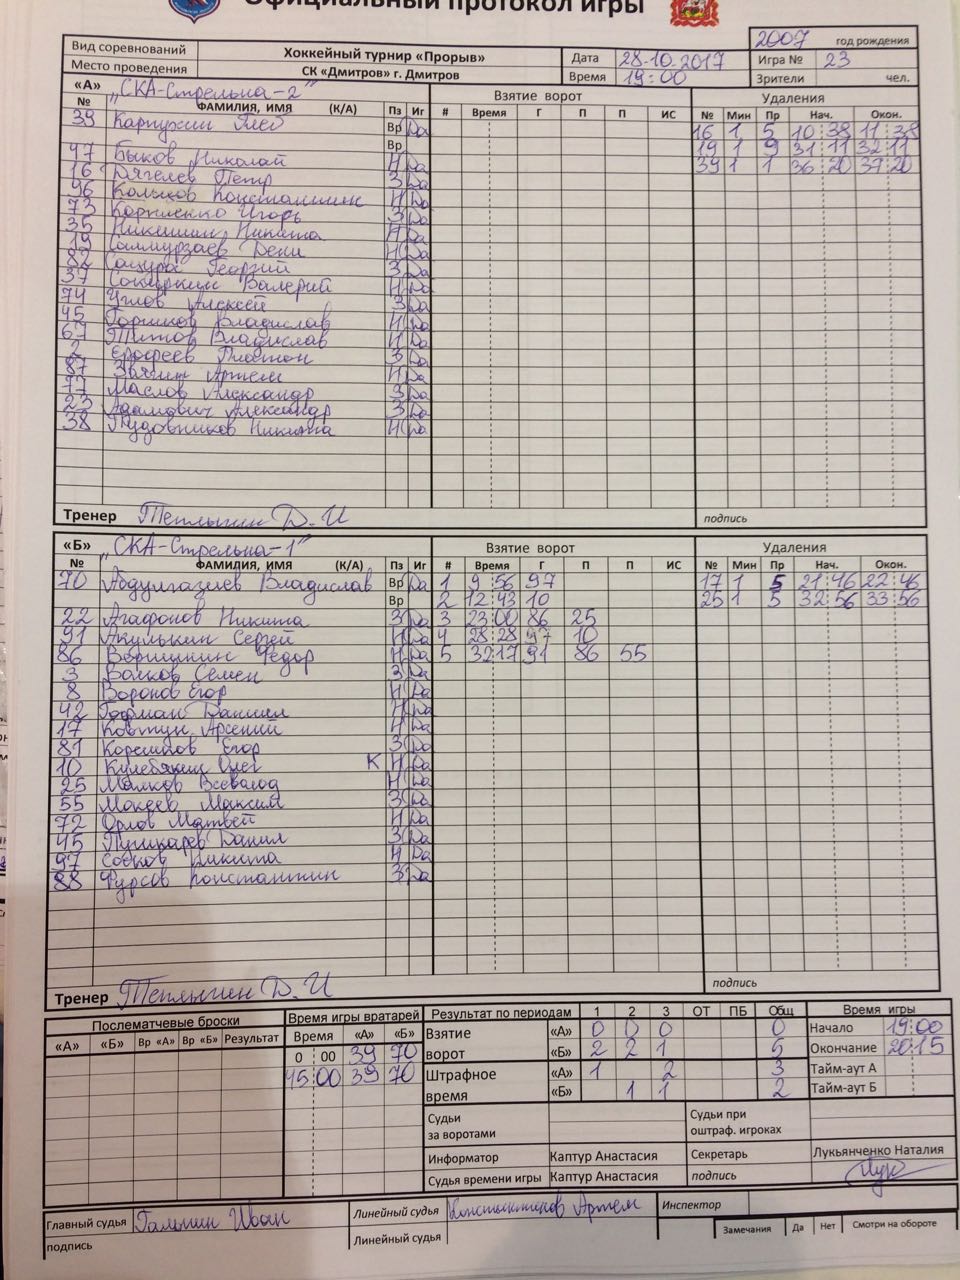 Официальный протокол игры
2007 год рождения
Вид соревнований Хоккейный турнир «Прорыв» Дата 28.10.2017 Игра № 23
Место проведения СК «Дмитров» г. Дмитров Время 19:00 Зрители чел.
«А» „СКА-Стрельна-2" Взятие ворот Удаления
№ ФАМИЛИЯ, ИМЯ (К/А) Пз Иг # Время Г П П ИС № Мин Пр Нач. Окон.
39 Карпухин Глеб Вр Да 16 1 5 10:38 11:38
Вр 19 1 9 31:11 32:11
47 Быков Николай Н Да 39 1 1 36:20 37:20
16 Дягелев Петр З Да
96 Кольцов Константин Н Да
73 Корниенко Игорь З Да
35 Никишин Никита Н Да
19 Саммурзаев Дени Н Да
82 Сацура Георгий З Да
37 Сокуркин Валерий Н Да
74 Углов Алексей З Да
45 Горшков Владислав Н Да
67 Титов Владислав Н Да
2 Ерофеев Платон З Да
87 Артем Н Да
77 Маслов Александр З Да
23 Адамович Александр З Да
38 Пудовников Никита Н Да
Тренер Теплыгин Д.И подпись
«Б» „СКА-Стрельна-1" Взятие ворот Удаления
№ ФАМИЛИЯ, ИМЯ (К/А) Пз Иг # Время Г П П ИС № Мин Пр Нач. Окон.
70 Абдулгазиев Владислав Вр Да 1 9:56 97 17 1 5 21:46 22:46
Вр 2 12:43 10 25 1 5 32:56 33:56
22 Агафонов Никита З Да 3 23:00 86 25
91 Акулькин Сергей Н Да 4 28:28 97 10
86 Вершинин Федор Н Да 5 32:17 91 86 55
3 Волков Семен З Да
8 Воронов Егор Н Да
42 Гофман Даниил Н Да
17 Ковтун Арсений Н Да
81 Корешков Егор З Да
10 Кулебякин Олег К Н Да
25 Малков Всеволод Н Да
55 Мокеев Максим З Да
72 Орлов Матвей Н Да
45 Пушкарев Данил З Да
97 Собков Никита Н Да
88 Фурсов Константин З Да
Тренер Теплыгин Д.И подпись
Послематчевые броски Время игры вратарей Результат по периодам 1 2 3 ОТ ПБ Общ Время игры
«А» «Б» Вр «А» Вр «Б» Результат Время «А» «Б» Взятие ворот «А» 0 0 0 0 Начало 19:00
0 00 39 70 «Б» 2 2 1 5 Окончание 20:15
45:00 39 70 Штрафное время «А» 1 2 3 Тайм-аут А
«Б» 1 1 2 Тайм-аут Б
Судьи за воротами Судьи при оштраф. игроках
Информатор Каптур Анастасия Секретарь Лукьянченко Наталия
Судья времени игры Каптур Анастасия подпись
Главный судья Галыгин Иван Линейный судья Константинов Артем Инспектор
подпись Линейный судья Замечания Да Нет Смотри на обороте